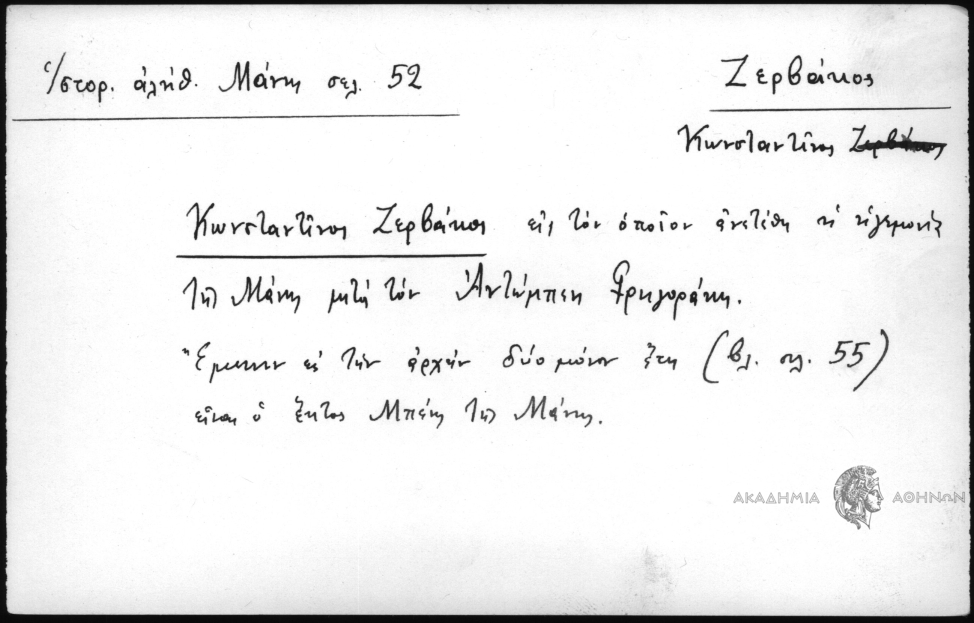 Ἱστορ. ἀλήθ. Μάνης σελ. 52
Ζερβάκος
Κωνσταντῖνος Ζερβάκος
Κωνσταντῖνος Ζερβάκος εἰς τὸν ὁποῖον ἀνετέθη ἡ ἡγεμονία
τῆς Μάνης μετὰ τὸν Ἀντώμπεη Γρηγοράκη.
Ἔμεινεν εἰς τὴν ἀρχὴν δύο μόνον ἔτη (βλ. σελ. 55)
εἶναι ὁ ἕκτος Μπέης τῆς Μάνης.
ΑΚΑΔΗΜΙΑ ΑΘΗΝΩΝ